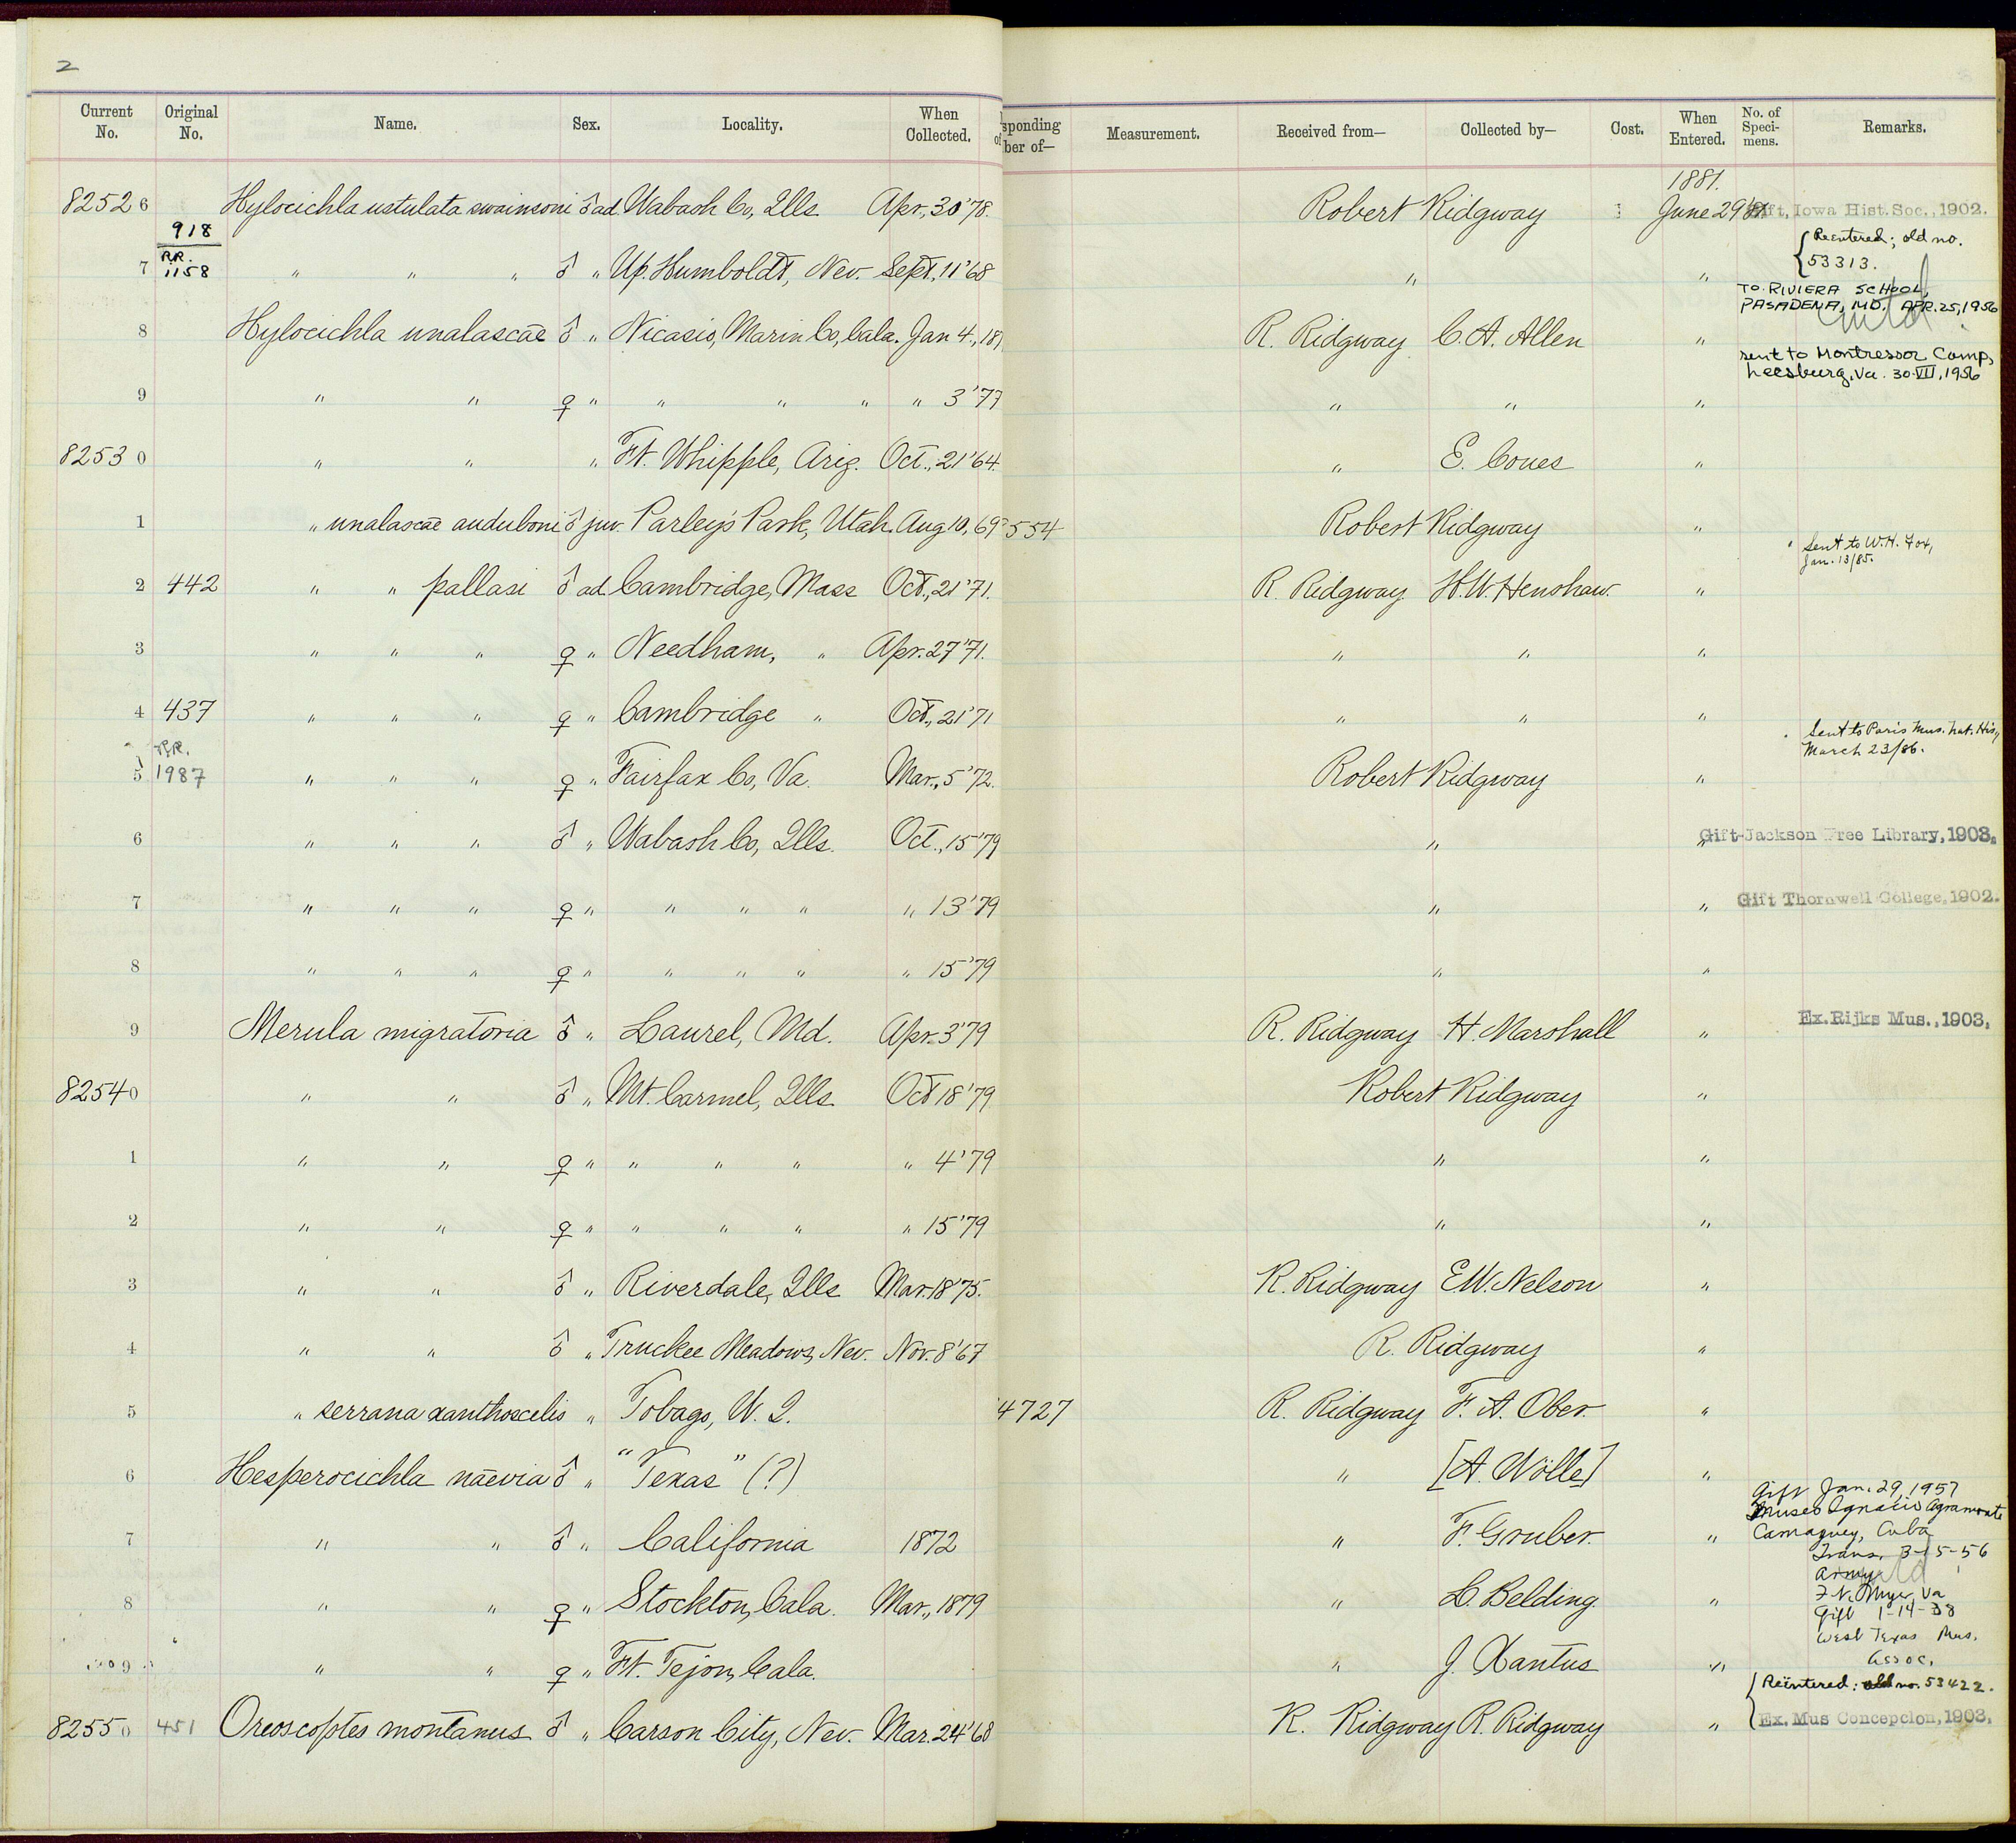 2
Current No. Original No. Name. Sex. Locality. When Collected. sponding ber of— Measurement. Received from— Collected by— Cost. When Entered. No. of Speci-mens. Remarks.
1881.
82526 Hylocichla ustulata swainsoni ♂ ad. Wabash Co, Ills. Apr., 30 '78. Robert Ridgway June 29 Gift, Iowa Hist. Soc., 1902.
918
R.R.
7 1158 " " " ♂ " Up. Humboldt, Nev. Sept, 11 '68 " " { Reentered; old no. 53313.
TO RIVIERA SCHOOL,
PASADENA, MD. APR. 25, 1956
8 Hylocichla unalascae ♂ " Nicasio, Marin Co, Cala. Jan 4, 187 R. Ridgway C. A. Allen "
sent to Montressor Camp,
Leesburg, Va. 30.VII.1956
9 " " ♀ " " " " " 3 '77 " " "
82530 " " " Ft. Whipple, Ariz. Oct., 21 '64. " E. Coues "
1 " unalascae auduboni ♂ juv. Parley's Park, Utah. Aug 10, 69 554 Robert Ridgway "
Sent to W.H. Fox,
Jan. 13/85.
2 442 " " pallasi ♂ ad Cambridge, Mass Oct, 21 '71. R. Ridgway H. W. Henshaw. "
3 " " " ♀ " Needham, " Apr. 27 '71. " " "
4 437 " " " ♀ " Cambridge " Oct., 21 '71 " " "
Sent to Paris Mus. Nat. His,
March 23/86.
R.R.
5 1987 " " " ♀ " Fairfax Co, Va. Mar., 5 '72. Robert Ridgway "
6 " " " ♂ " Wabash Co, Ills. Oct., 15 '79 " " Gift-Jackson Free Library, 1903.
7 " " " ♀ " " " " " 13 '79 " " Gift Thornwell College, 1902.
8 " " " ♀ " " " " " 15 '79 " "
9 Merula migratoria ♂ " Laurel, Md. Apr. 3 '79 R. Ridgway H. Marshall " Ex. Rijks Mus., 1903.
82540 " " ♂ " Mt. Carmel, Ills. Oct 18 '79 Robert Ridgway "
1 " " ♀ " " " " " 4 '79 " "
2 " " ♀ " " " " " 15 '79 " "
3 " " ♂ " Riverdale, Ills. Mar. 18 '75. R. Ridgway E. W. Nelson "
4 " " ♂ " Truckee Meadows, Nev. Nov. 8 '67 R. Ridgway "
5 " serrana xanthoscelis " Tobago, W. I. 4727 R. Ridgway F. A. Ober. "
6 Hesperocichla naevia ♂ " "Texas" (?) " [A. Wölle] "
Gift Jan. 29, 1957
Museo Ignacio Agramonte
Camaguey, Cuba
7 " " ♂ " California 1872 " F. Gruber. "
Trans. 3-15-56
Army
Ft. Myer, Va
8 " " ♀ " Stockton, Cala. Mar., 1879 " L. Belding. "
Gift 1-14-38
West Texas Mus.
Assoc.
9 " " ♀ " Ft. Tejon, Cala. " J. Xantus "
{ Reëntered: old no. 53422.
82550 451 Oreoscoptes montanus ♂ " Carson City, Nev. Mar. 24 '68 R. Ridgway R. Ridgway " Ex. Mus Concepcion, 1903.